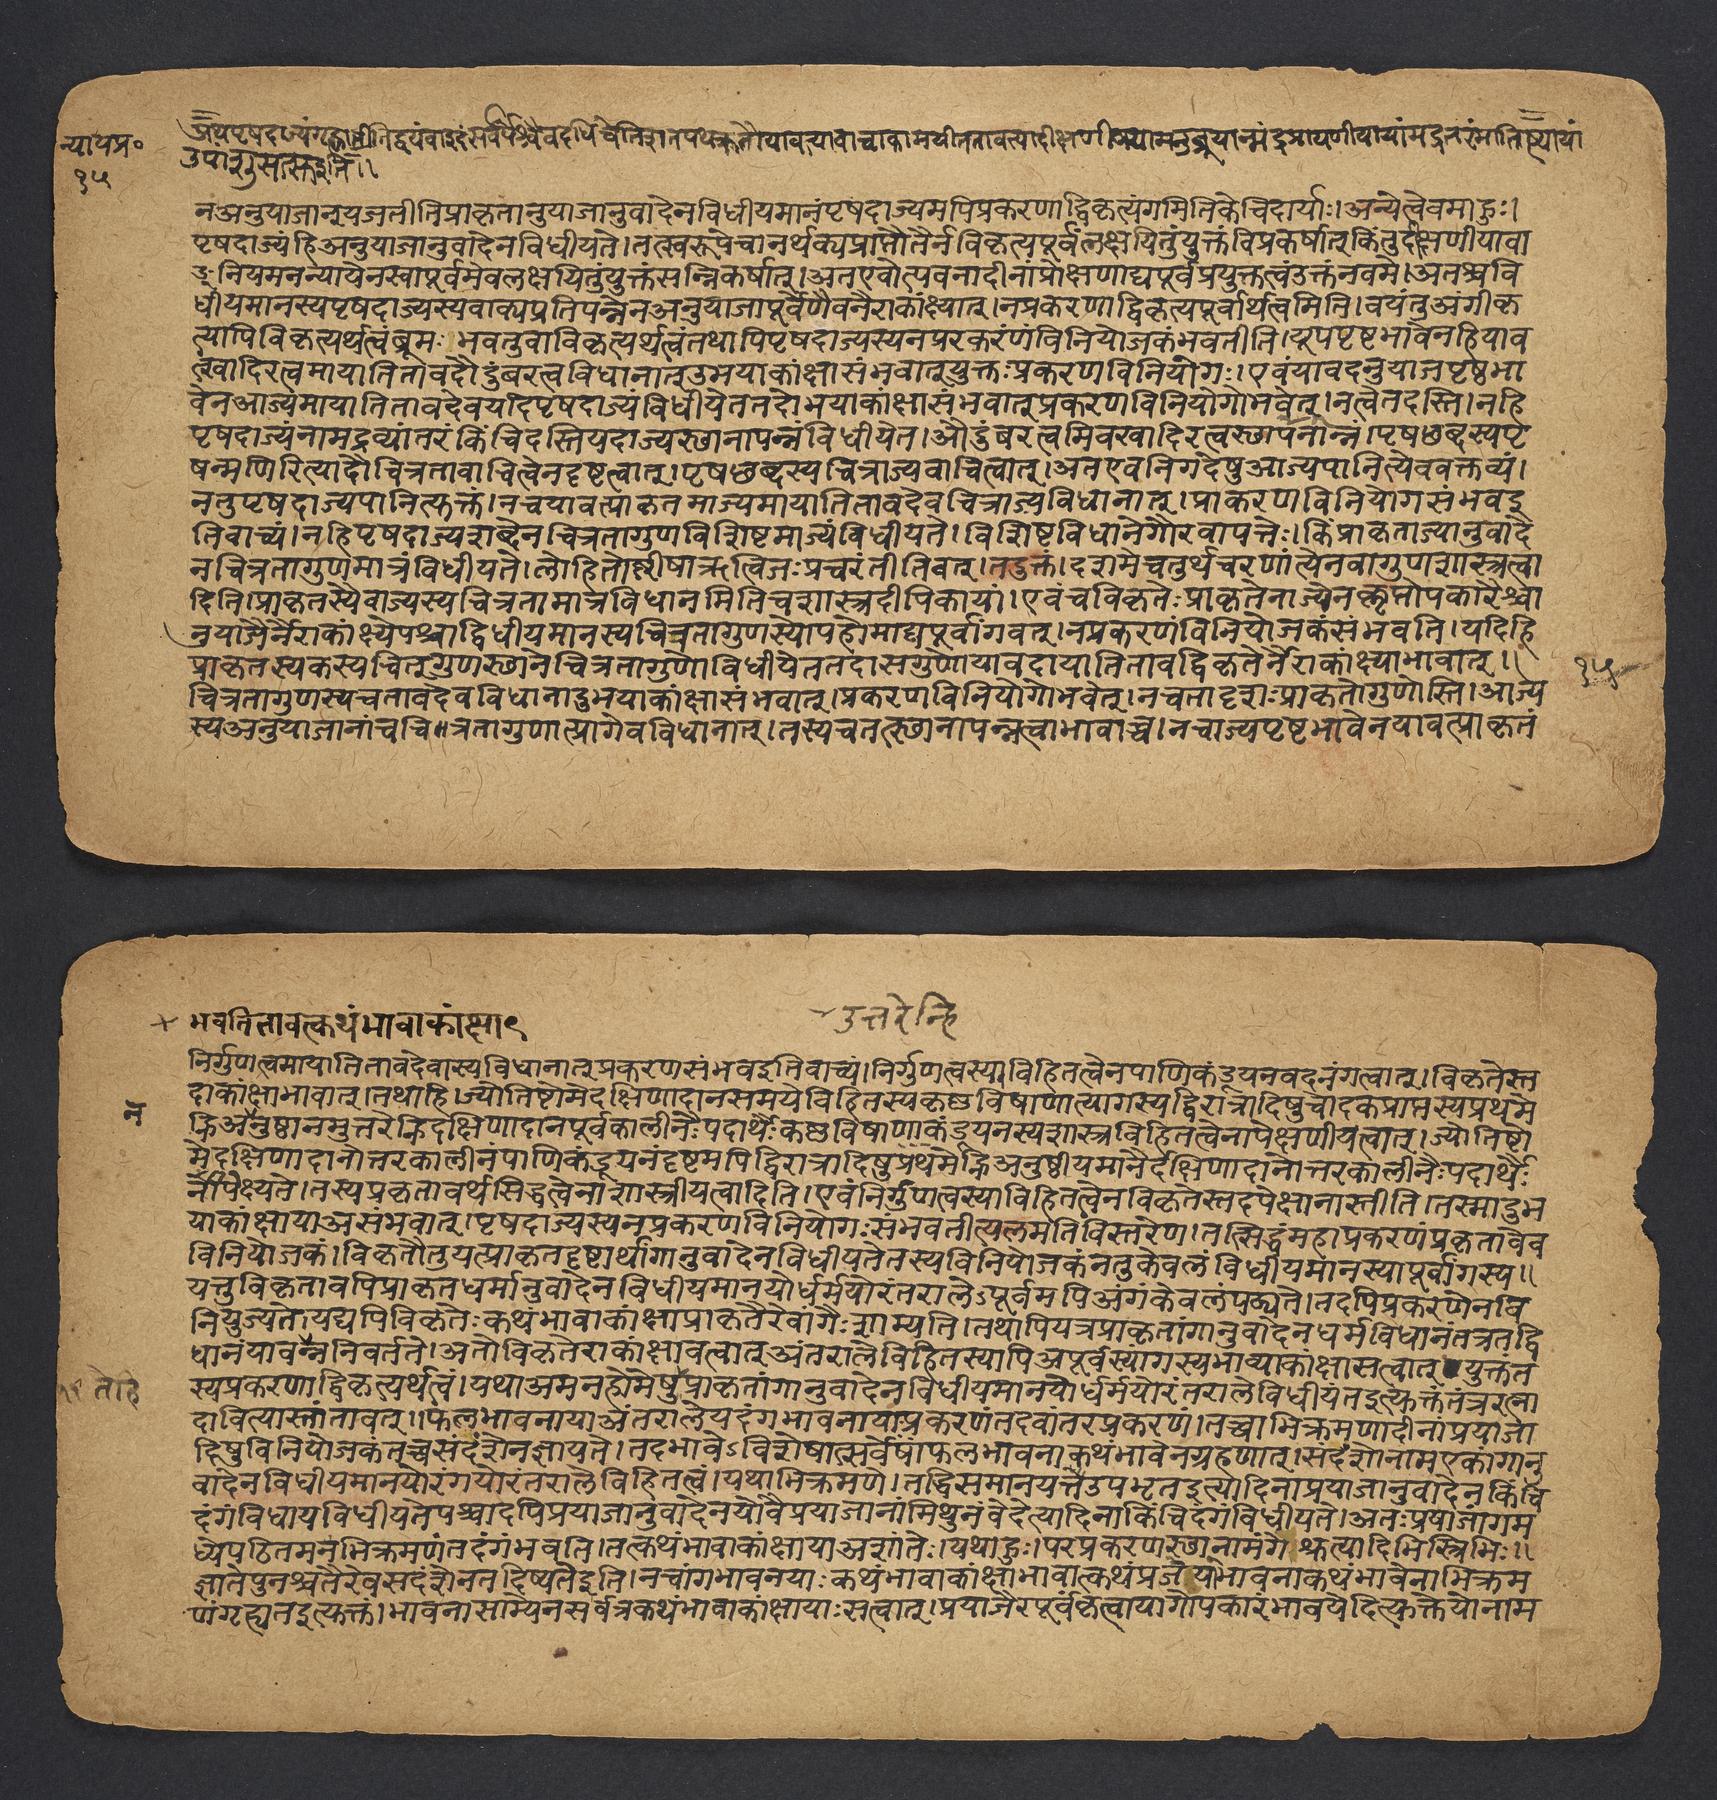 न्यायप्र०
१५
उपांशु
नअनुयाजान्यजतीतिप्राकृतानुयाजानुवादेनविधीयमानंपृषदाज्यमपिप्रकरणाद्विकृत्यंगमितिकेचिदार्याः।अन्येत्वेवमाहुः।
पृषदाज्यंहिअनुयाजानुवादेनविधीयते।तत्स्वरूपेचानर्थक्यप्राप्तौतैर्नविकृत्यपूर्वंलक्षयितुंयुक्तंविप्रकर्षात्किंतुदीक्षणीयावा
ङ्नियमनन्यायेनस्वापूर्वमेवलक्षयितुंयुक्तंसन्निकर्षात्।अतएवोत्पवनादीनांप्रोक्षणाद्यपूर्वप्रयुक्तत्वंउक्तंनवमे।अतश्चवि
धीयमानस्यपृषदाज्यस्यवाक्यप्रतिपन्नेनअनुयाजापूर्वेणैवनैराकांक्ष्यात्।नप्रकरणाद्विकृत्यपूर्वार्थत्वमिति।वयंतुअंगीकृ
त्यापिविकृत्यर्थत्वंब्रूमः।भवतुवाविकृत्यर्थत्वंतथापिपृषदाज्यस्यनप्रकरणंविनियोजकंभवतीति।यूपपृष्टभावेनहियाव
त्खादिरत्वमायातितावदौदुंबरत्वविधानात्उभयाकांक्षासंभवात्युक्तःप्रकरणविनियोगः।एवंयावदनुयाजपृष्ठभा
वेनआज्यमायातितावदेवयदिपृषदाज्यंविधीयेततदोभयाकांक्षासंभवात्प्रकरणविनियोगोभवेत्।नत्वेतदस्ति।नहि
पृषदाज्यंनामद्रव्यांतरंकिंचिदस्तियदाज्यस्थानापन्नंविधीयेत।औदुंबरत्वमिवखादिरत्वस्थापनान्नं।पृषछब्दस्यपृ
षन्मणिरित्यादौचित्रतावाचित्वेनदृष्टत्वात्।पृषछब्दस्यचित्राज्यवाचित्वात्।अतएवनिगदेषुआज्यपानित्येववक्तव्यं।
नतुपृषदाज्यपानित्युक्तं।नचयावत्प्राकृतमाज्यमायातितावदेवचित्राज्यविधानात्।प्राकरणविनियोगसंभवइ
तिवाच्यं।नहिपृषदाज्यशब्देनचित्रतागुणविशिष्टमाज्यंविधीयते।विशिष्टविधानेगौरवापत्तेः।किंप्राकृताज्यानुवादे
नचित्रतागुणमात्रंविधीयते।लोहितोष्णीषाऋत्विजःप्रचरंतीतिवत्।तदुक्तं।दशमेचतुर्थचरणांत्येनवागुणशास्त्रत्वा
दिति।प्राकृतस्यैवाज्यस्यचित्रतामात्रविधानमितिचशास्त्रदीपिकायां।एवंचविकृतेःप्राकृतेनाज्येनक्लृप्तोपकारैश्चा
नुयाजैर्नैराकांक्ष्येपश्चाद्विधीयमानस्यचित्रतागुणस्योपहोमाद्यपूर्वांगवत्।नप्रकरणंविनियोजकंसंभवति।यदिहि
प्राकृतस्यकस्यचित्गुणस्थानेचित्रतागुणोविधीयेततदासगुणोयावदायातितावद्विकृतेर्नैराकांक्ष्याभावात्॥
१५
चित्रतागुणस्यचतावदेवविधानादुभयाकांक्षासंभवात्।प्रकरणविनियोगोभवेत्।नचतादृशःप्राकृतोगुणोस्ति।आज्य
स्यअनुयाजानांचचित्रतागुणात्प्रागेवविधानात्।तस्यचतत्स्थानापन्नत्वाभावाच्च।नचाज्यपृष्टभावेनयावत्प्राकृतं
भवतितावत्कथंभावाकांक्षा९
उत्तरेन्हि
निर्गुणत्वमायातितावदेवास्यविधानात्प्रकरणसंभवइतिवाच्यं।निर्गुणत्वस्याविहितत्वेनपाणिकंडूयनवदनंगत्वात्।विकृतेस्त
दाकांक्षाभावात्।तथाहि।ज्योतिष्टोमेदक्षिणादानसमयेविहितस्यकृष्णविषाणात्यागस्यद्विरात्रादिषुचोदकप्राप्तस्यप्रथमे
न
ह्निअनुष्ठानमुत्तरेह्निदक्षिणादानपूर्वकालीनैःपदार्थैःकृष्णविषाणाकंडूयनस्यशास्त्रविहितत्वेनापेक्षणीयत्वात्।ज्योतिष्टो
मेदक्षिणादानोत्तरकालीनंपाणिकंडूयनंदृष्टमपिद्विरात्रादिषुप्रथमेह्निअनुष्ठीयमानैर्दक्षिणादानोत्तरकालीनैःपदार्थै
र्नापेक्ष्यते।तस्यप्रकृतावर्थसिद्धत्वेनाशास्त्रीयत्वादिति।एवंनिर्गुणत्वस्याविहितत्वेनविकृतेस्तदपेक्षानास्तीति।तस्मादुभ
याकांक्षायाअसंभवात्।पृषदाज्यस्यनप्रकरणविनियोगःसंभवतीत्यलमतिविस्तरेण।तत्सिद्धंमहाप्रकरणंप्रकृतावेव
विनियोजकं।विकृतौतुयत्प्राकृतदृष्टार्थांगानुवादेनविधीयतेतस्यविनियोजकंनतुकेवलंविधीयमानस्यापूर्वांगस्य॥
यत्तुविकृतावपिप्राकृतधर्मानुवादेनविधीयमानयोर्धर्मयोरंतरालेऽपूर्वमपिअंगंकेवलंपठ्यते।तदपिप्रकरणेनवि
नियुज्यते।यद्यपिविकृतेःकथंभावाकांक्षाप्राकृतैरेवांगैःशाम्यति।तथापियत्रप्राकृतांगानुवादेनधर्मविधानंतत्रतद्वि
धानंयावन्ननिवर्तते।अतोविकृतेराकांक्षावत्वात्अंतरालेविहितस्यापिअपूर्वस्यांगस्यभाव्याकांक्षासत्वात्युक्तंत
स्यप्रकरणाद्विकृत्यर्थत्वं।यथाआमनहोमेषुप्राकृतांगानुवादेनविधीयमानयोर्धर्मयोरंतरालेविधीयंतइत्युक्तंतंत्ररत्ना
दावित्यास्तांतावत्।फलभावनायाअंतरालेयदंगभावनायाप्रकरणंतदवांतरप्रकरणं।तच्चाभिक्रमणादीनांप्रयाजा
दिषुविनियोजकंतच्चसंदंशेनज्ञायते।तदभावेऽविशेषात्सर्वेषांफलभावनाकथंभावेनग्रहणात्।संदंशोनामएकांगानु
वादेनविधीयमानयोरंगयोरंतरालेविहितत्वं।यथाभिक्रमणे।तद्धिसमानयत्तेउपभृतइत्यादिनाप्रयाजानुवादेनकिंचि
दंगंविधायविधीयतेपश्चादपिप्रयाजानुवादेनयोवैप्रयाजानांमिथुनंवेदेत्यादिनाकिंचिदंगंविधीयते।अतःप्रयाजांगम
ध्येपठितमनभिक्रमणंतदंगंभवति।तत्कथंभावाकांक्षायाअशांतेः।यथाहुः।परप्रकरणस्थानामंगंश्रुत्यादिभिस्त्रिभिः॥
ज्ञातेपुनश्चतैरेवसंदंशेनतदिष्यतेइति।नचांगभावनयाःकथंभावाकांक्षाभावात्कथंप्रयाजभावनाकथंभावेनाभिक्रम
णंगृह्यतइत्युक्तं।भावनासाम्येनसर्वत्रकथंभावाकांक्षायाःसत्वात्।प्रयाजैरपूर्वंकृत्वायागोपकारंभावयेदित्युक्तेयोनाम